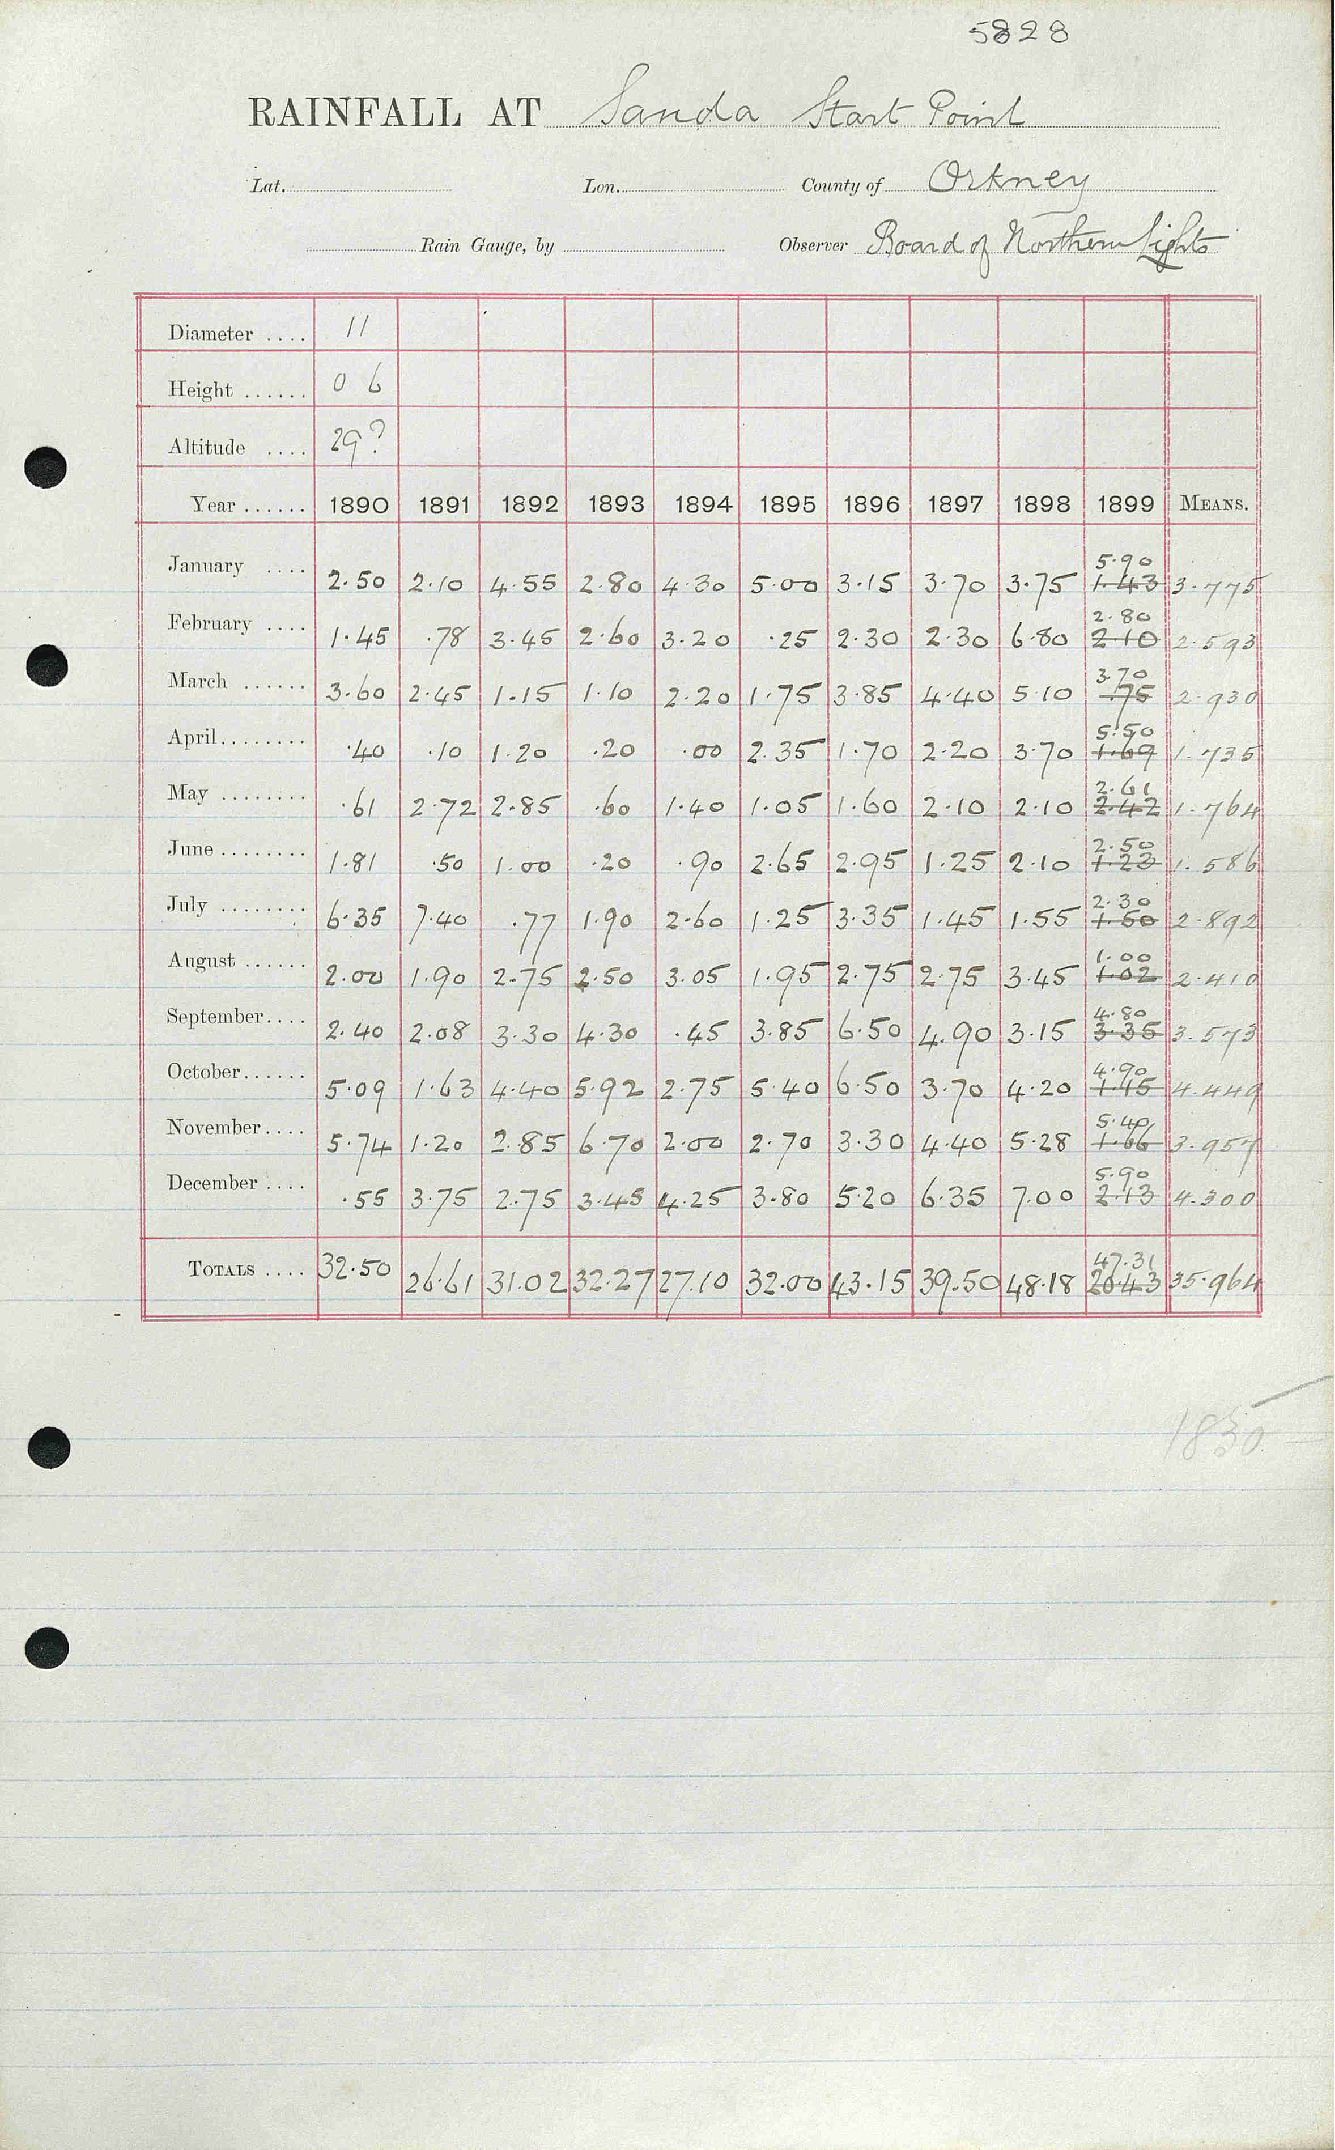 5828
RAINFALL AT Sanda Start Point
Lat. Lon. County of Orkney
Rain Gauge, by Observer Board of Northern Lights
Diameter .... 11
Height ...... 0 6
Altitude .... 29?
Year ...... 1890 1891 1892 1893 1894 1895 1896 1897 1898 1899 MEANS.
January .... 2.50 2.10 4.55 2.80 4.30 5.00 3.15 3.70 3.75 5.90 1.43 3.775
February .... 1.45 .78 3.45 2.60 3.20 .25 2.30 2.30 6.80 2.80 2.10 2.593
March ...... 3.60 2.45 1.15 1.10 2.20 1.75 3.85 4.40 5.10 3.70 .75 2.930
April........ .40 .10 1.20 .20 .00 2.35 1.70 2.20 3.70 5.50 1.69 1.735
May ........ .61 2.72 2.85 .60 1.40 1.05 1.60 2.10 2.10 2.61 2.42 1.764
June ........ 1.81 .50 1.00 .20 .90 2.65 2.95 1.25 2.10 2.50 1.23 1.586
July ........ 6.35 7.40 .77 1.90 2.60 1.25 3.35 1.45 1.55 2.30 1.50 2.892
August ...... 2.00 1.90 2.75 2.50 3.05 1.95 2.75 2.75 3.45 1.00 1.02 2.410
September.... 2.40 2.08 3.30 4.30 .45 3.85 6.50 4.90 3.15 4.80 3.35 3.573
October...... 5.09 1.63 4.40 5.92 2.75 5.40 6.50 3.70 4.20 4.90 1.15 4.449
November.... 5.74 1.20 2.85 6.70 2.00 2.70 3.30 4.40 5.28 5.40 1.66 3.957
December .... .55 3.75 2.75 3.45 4.25 3.80 5.20 6.35 7.00 5.90 2.13 4.300
TOTALS .... 32.50 26.61 31.02 32.27 27.10 32.00 43.15 39.50 48.18 47.31 20.43 35.964
1850